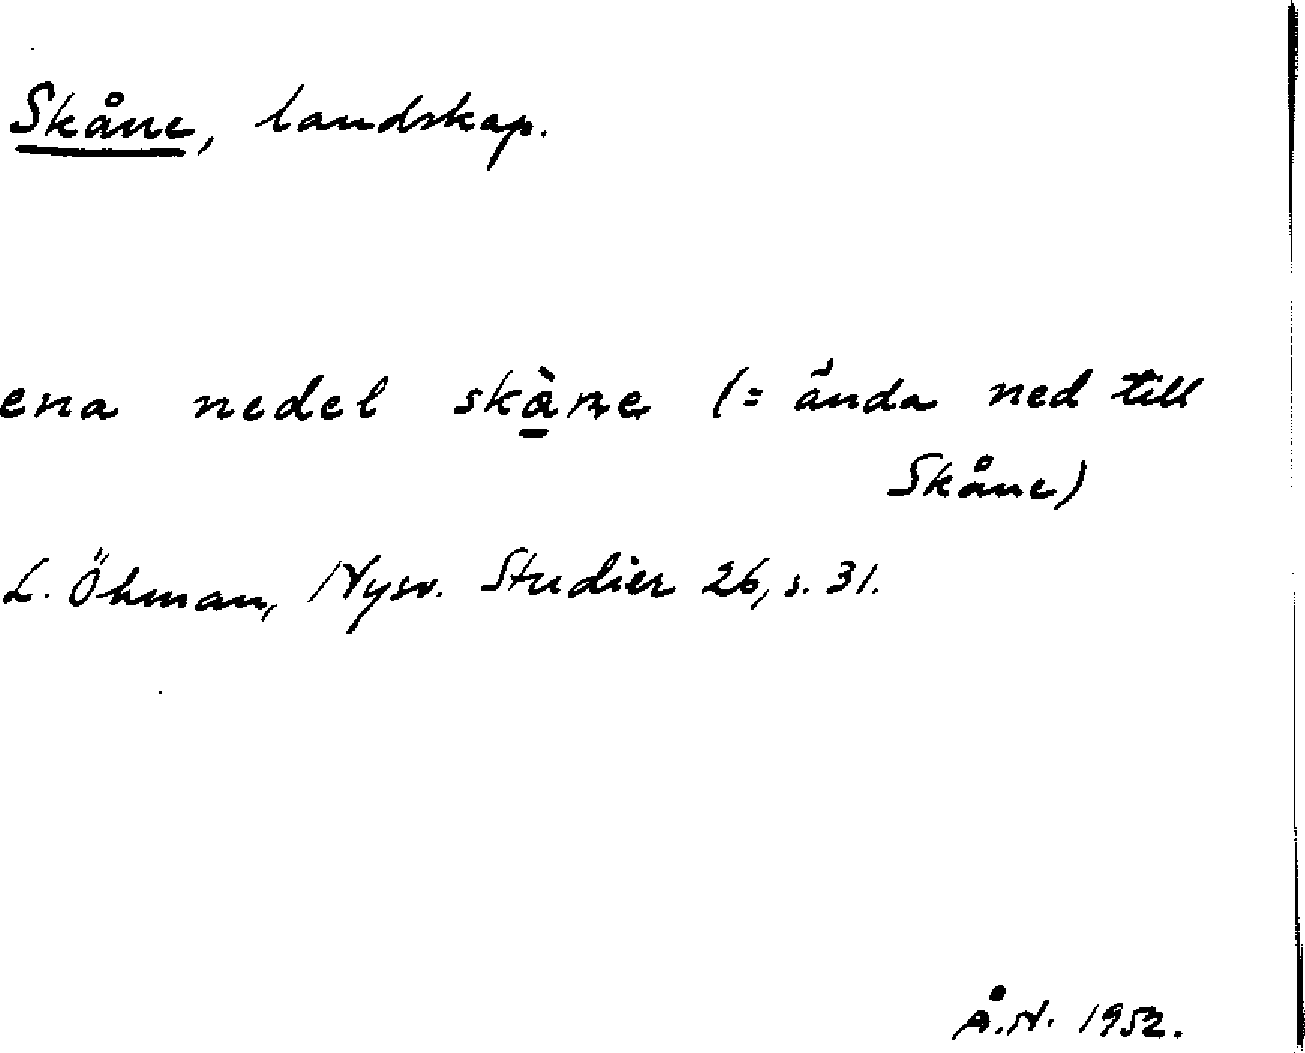 Skåne, landskap.
ena nedel skàne (= ända ned till
Skåne)
L. Öhman, Nysv. Studier 26, s. 31.
Å.N. 1952.